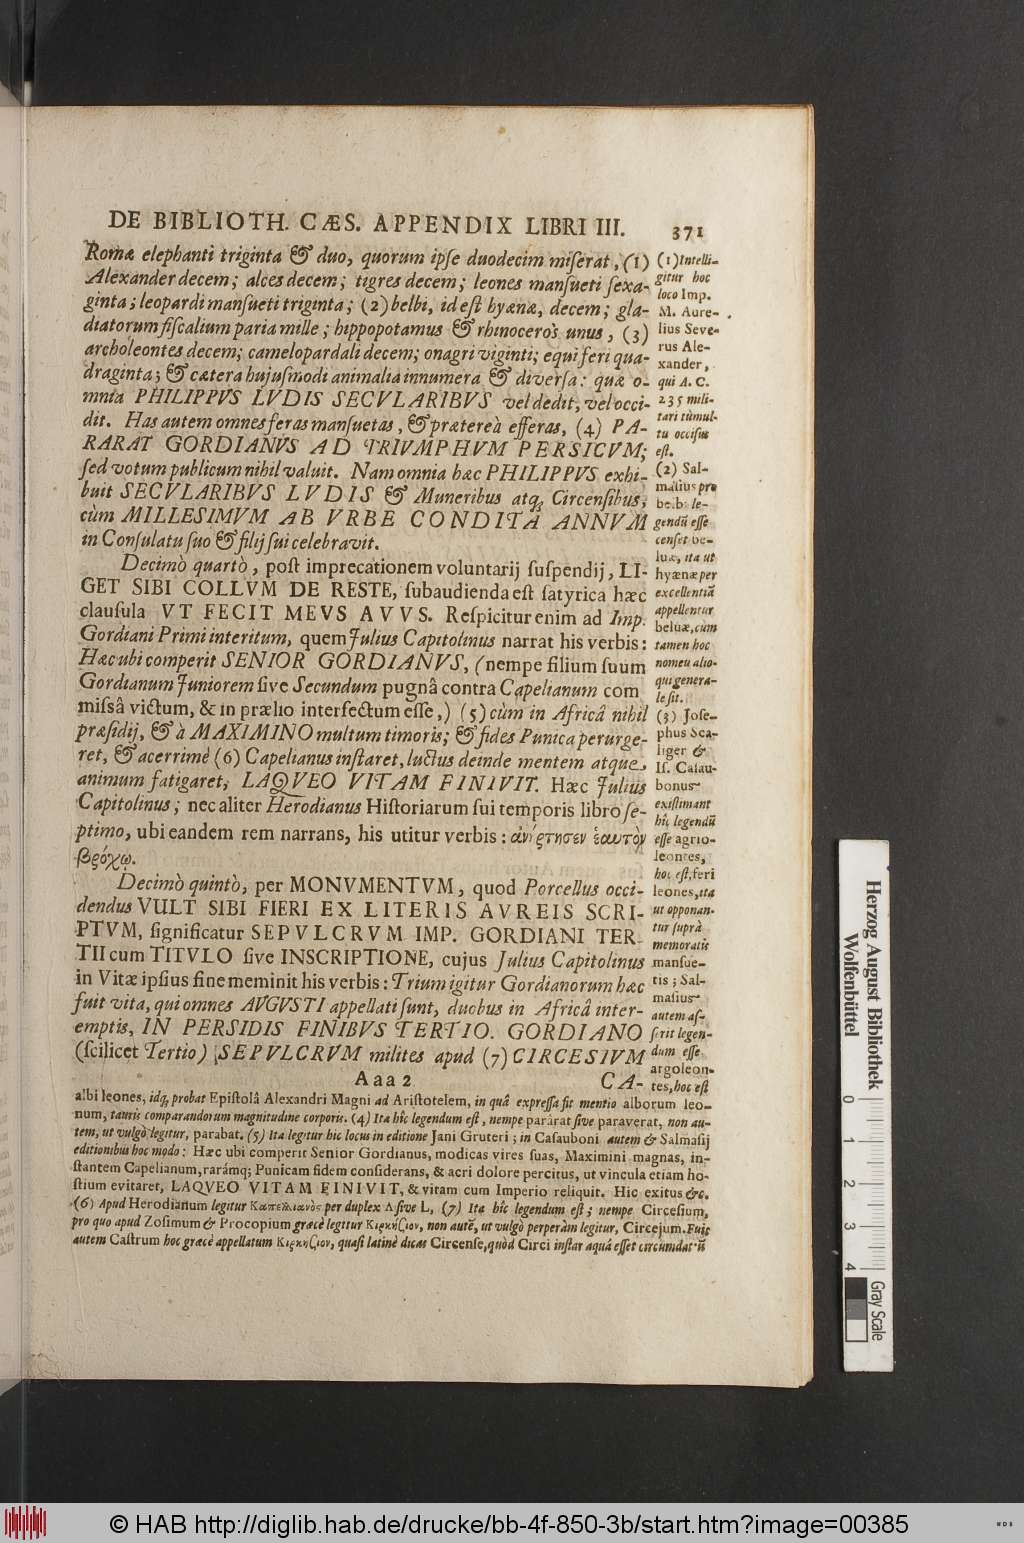 DE BIBLIOTH. CÆS. APPENDIX LIBRI III. 371
Romæ elephanti triginta & duo, quorum ipſe duodecim miſerat, (1)
Alexander decem; alces decem; tigres decem; leones manſueti ſexa-
ginta; leopardi manſueti triginta; (2) belbi, id eſt hyænæ, decem; gla-
diatorum fiſcalium paria mille; hippopotamus & rhinoceros unus, (3)
archoleontes decem; camelopardali decem; onagri viginti; equi feri qua-
draginta; & cætera hujuſmodi animalia innumera & diverſa: quæ o-
mnia PHILIPPVS LVDIS SECVLARIBVS vel dedit, vel occi-
dit. Has autem omnes feras manſuetas, & prætereà efferas, (4) PA-
RARAT GORDIANVS AD TRIVMPHVM PERSICVM;
ſed votum publicum nihil valuit. Nam omnia hæc PHILIPPVS exhi-
buit SECVLARIBVS LVDIS & Muneribus atq; Circenſibus,
cùm MILLESIMVM AB VRBE CONDITÂ ANNVM
in Conſulatu ſuo & filij ſui celebravit.
Decimò quartò, poſt imprecationem voluntarij ſuſpendij, LI-
GET SIBI COLLVM DE RESTE, ſubaudienda eſt ſatyrica hæc
clauſula VT FECIT MEVS AVVS. Reſpicitur enim ad Imp.
Gordiani Primi interitum, quem Julius Capitolinus narrat his verbis:
Hæc ubi comperit SENIOR GORDIANVS, (nempe filium ſuum
Gordianum Juniorem ſive Secundum pugnâ contra Capelianum com
miſsâ victum, & in prælio interfectum eſſe,) (5) cùm in Africâ nihil
præſidij, & à MAXIMINO multum timoris; & fides Punica perurge-
ret, & acerrimè (6) Capelianus inſtaret, luctus deinde mentem atque
animum fatigaret, LAQVEO VITAM FINIVIT. Hæc Julius
Capitolinus; nec aliter Herodianus Hiſtoriarum ſui temporis libro ſe-
ptimo, ubi eandem rem narrans, his utitur verbis: ἀνήρτησεν ἑαυτὸν
βρόχῳ.
Decimò quintò, per MONVMENTVM, quod Porcellus occi-
dendus VULT SIBI FIERI EX LITERIS AVREIS SCRI-
PTVM, ſignificatur SEPVLCRVM IMP. GORDIANI TER-
TII cum TITVLO ſive INSCRIPTIONE, cujus Julius Capitolinus
in Vitæ ipſius fine meminit his verbis: Trium igitur Gordianorum hæc
fuit vita, qui omnes AVGVSTI appellati ſunt, duobus in Africâ inter-
emptis, IN PERSIDIS FINIBVS TERTIO. GORDIANO
(ſcilicet Tertio) SEPVLCRVM milites apud (7) CIRCESIVM
Aaa 2 CA-
(1) Intelli-
gitur hoc
loco Imp.
M. Aure-
lius Seve-
rus Ale-
xander,
qui A. C.
235 mili-
tari tumul-
tu occiſus
eſt.
(2) Sal-
maſius pro
belbi le-
gendũ eſſe
cenſet be-
luæ, ita ut
hyænæ per
excellentiã
appellentur
beluæ, cùm
tamen hoc
nomen alio-
qui genera-
le ſit.
(3) Joſe-
phus Sca-
liger &
Iſ. Caſau-
bonus
exiſtimant
hîc legendũ
eſſe agrio-
leontes,
hoc eſt, feri
leones, ita
ut opponan-
tur ſuprà
memoratis
manſue-
tis; Sal-
maſius
autem aſ-
ſerit legen-
dum eſſe
argoleon-
tes, hoc eſt
albi leones, idq; probat Epiſtolâ Alexandri Magni ad Ariſtotelem, in quâ expreſſa fit mentio alborum leo-
num, tauris comparandorum magnitudine corporis. (4) Ita hîc legendum eſt, nempe parârat ſive paraverat, non au-
tem, ut vulgò legitur, parabat. (5) Ita legitur hic locus in editione Jani Gruteri; in Caſauboni autem & Salmaſij
editionibus hoc modo: Hæc ubi comperit Senior Gordianus, modicas vires ſuas, Maximini magnas, in-
ſtantem Capelianum, rarámq; Punicam fidem conſiderans, & acri dolore percitus, ut vincula etiam ho-
ſtium evitaret, LAQVEO VITAM FINIVIT, & vitam cum Imperio reliquit. Hic exitus &c.
(6) Apud Herodianum legitur Καπελλιανὸς per duplex Λ ſive L, (7) Ita hîc legendum eſt; nempe Circeſium,
pro quo apud Zoſimum & Procopium græcè legitur Κιρκήσιον, non autẽ, ut vulgò perperàm legitur, Circejum. Fuit
autem Caſtrum hoc græcè appellatum Κιρκήσιον, quaſi latinè dicas Circenſe, quòd Circi inſtar aquâ eſſet circumdatũ
Herzog August Bibliothek
Wolfenbüttel
0 1 2 3 4
Gray Scale
© HAB http://diglib.hab.de/drucke/bb-4f-850-3b/start.htm?image=00385
WDB